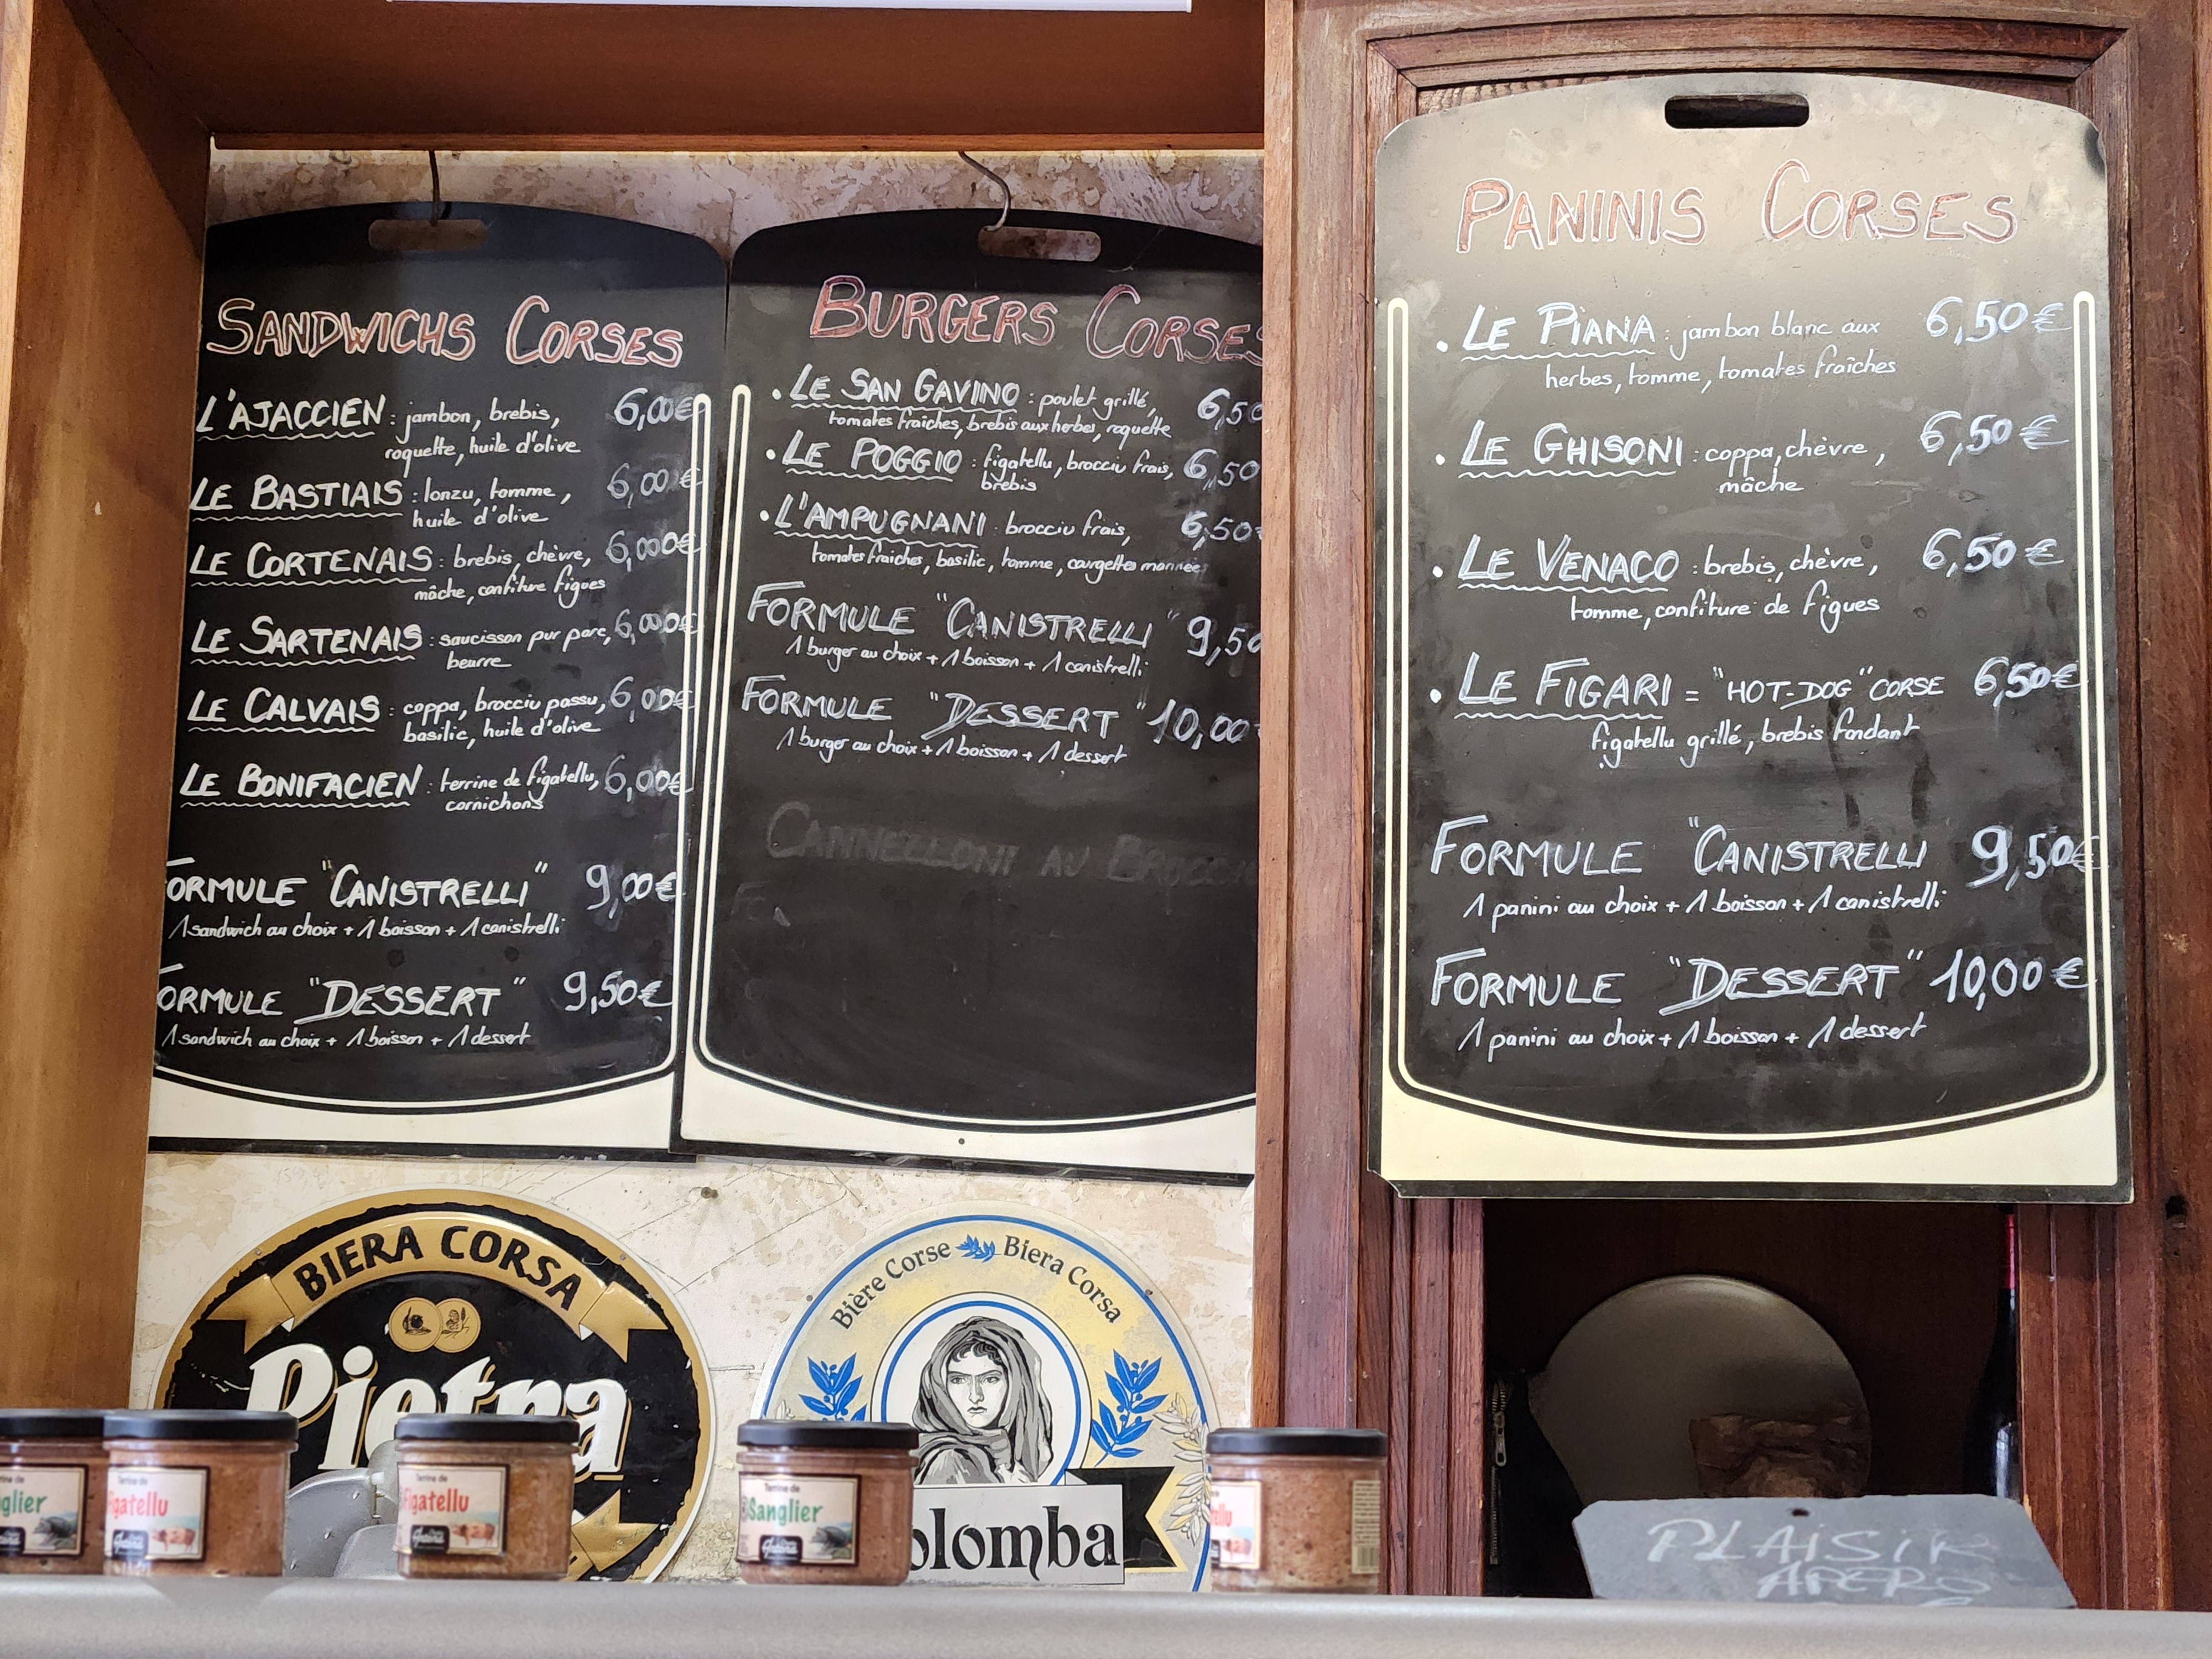 SANDWICHS CORSES
L'AJACCIEN : jambon, brebis, 6,00€
roquette, huile d'olive
LE BASTIAIS : lonzu, tomme, 6,00€
huile d'olive
LE CORTENAIS : brebis, chèvre, 6,00€
mâche, confiture figues
LE SARTENAIS : saucisson pur porc, 6,00€
beurre
LE CALVAIS : coppa, brocciu passu, 6,00€
basilic, huile d'olive
LE BONIFACIEN : terrine de figatellu, 6,00€
cornichons
FORMULE "CANISTRELLI" 9,00€
1 sandwich au choix + 1 boisson + 1 canistrelli
FORMULE "DESSERT" 9,50€
1 sandwich au choix + 1 boisson + 1 dessert
BURGERS CORSES
• LE SAN GAVINO : poulet grillé, 6,50
tomates fraîches, brebis aux herbes, roquette
• LE POGGIO : figatellu, brocciu frais, 6,50
brebis
• L'AMPUGNANI : brocciu frais, 6,50€
tomates fraîches, basilic, tomme, courgettes marinées
FORMULE "CANISTRELLI" 9,50
1 burger au choix + 1 boisson + 1 canistrelli
FORMULE "DESSERT" 10,00€
1 burger au choix + 1 boisson + 1 dessert
CANNELLONI AU BROCCIU
PANINIS CORSES
• LE PIANA : jambon blanc aux 6,50€
herbes, tomme, tomates fraîches
• LE GHISONI : coppa, chèvre, 6,50€
mâche
• LE VENACO : brebis, chèvre, 6,50€
tomme, confiture de figues
• LE FIGARI = "HOT-DOG" CORSE 6,50€
figatellu grillé, brebis fondant
FORMULE "CANISTRELLI 9,50€
1 panini au choix + 1 boisson + 1 canistrelli
FORMULE "DESSERT" 10,00€
1 panini au choix + 1 boisson + 1 dessert
BIERA CORSA
Pietra
Bière Corse Biera Corsa
olomba
glier
Terrine de
figatellu
Terrine de
Figatellu
Terrine de
Sanglier
PLAISIR
APERO